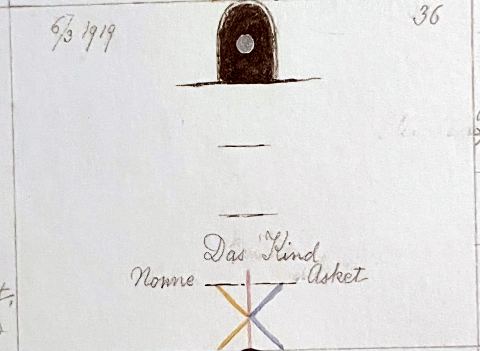 6/3 1919
36
Das Kind
Nonne
Asket